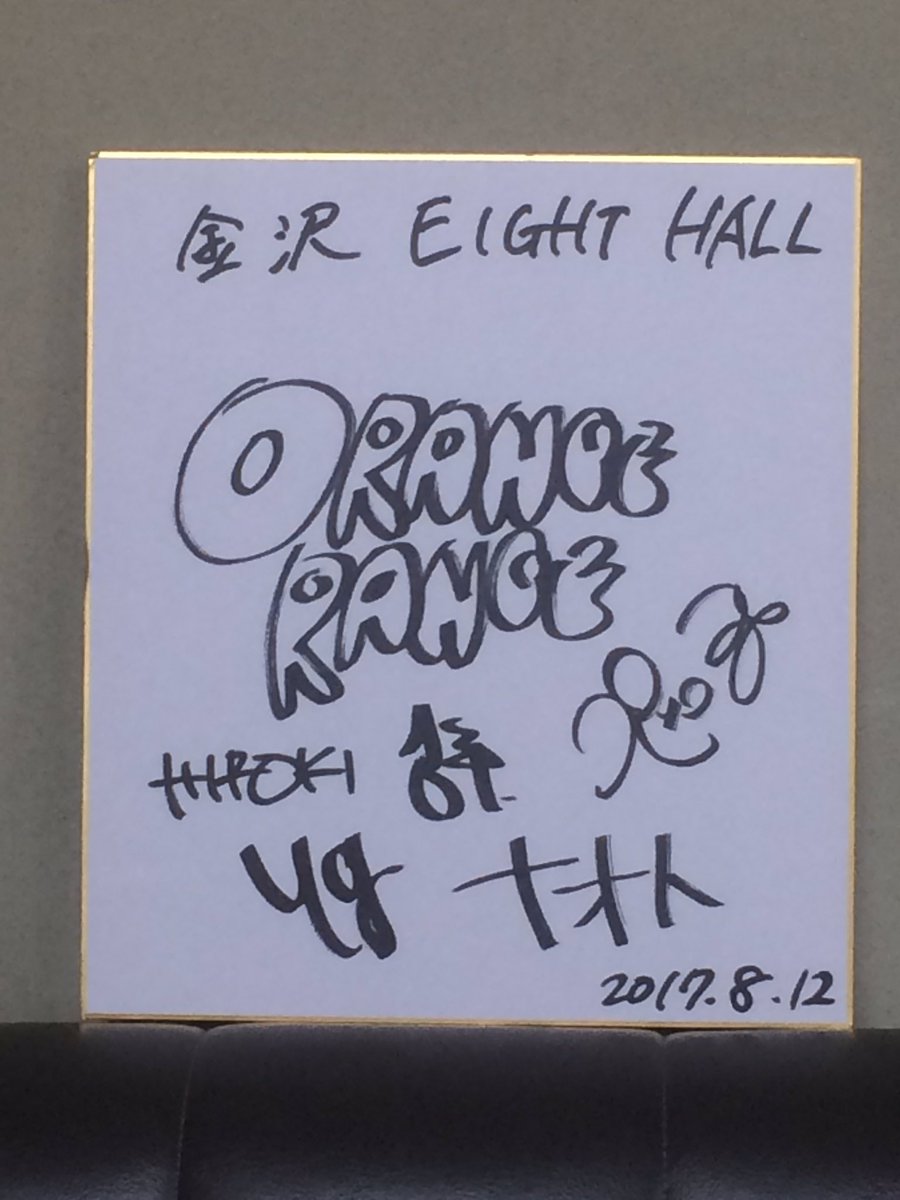 金沢 EIGHT HALL
ORANGE
RANGE
HIROKI
yg ナオト
2017.8.12